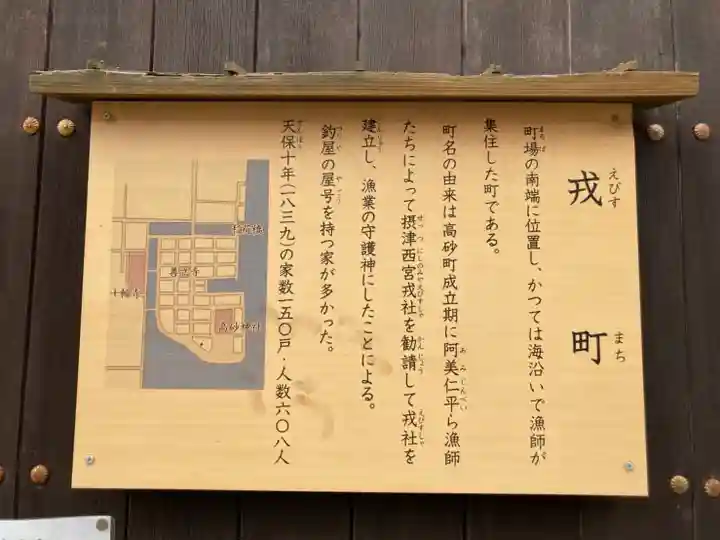 戎町
えびす まち
町場の南端に位置し、かつては海沿いで漁師が
集住した町である。
町名の由来は高砂町成立期に阿美仁平ら漁師
たちによって摂津西宮戎社を勧請して戎社を
建立し、漁業の守護神にしたことによる。
釣屋の屋号を持つ家が多かった。
天保十年(一八三九)の家数一五〇戸・人数六〇八人
十輪寺
高砂神社